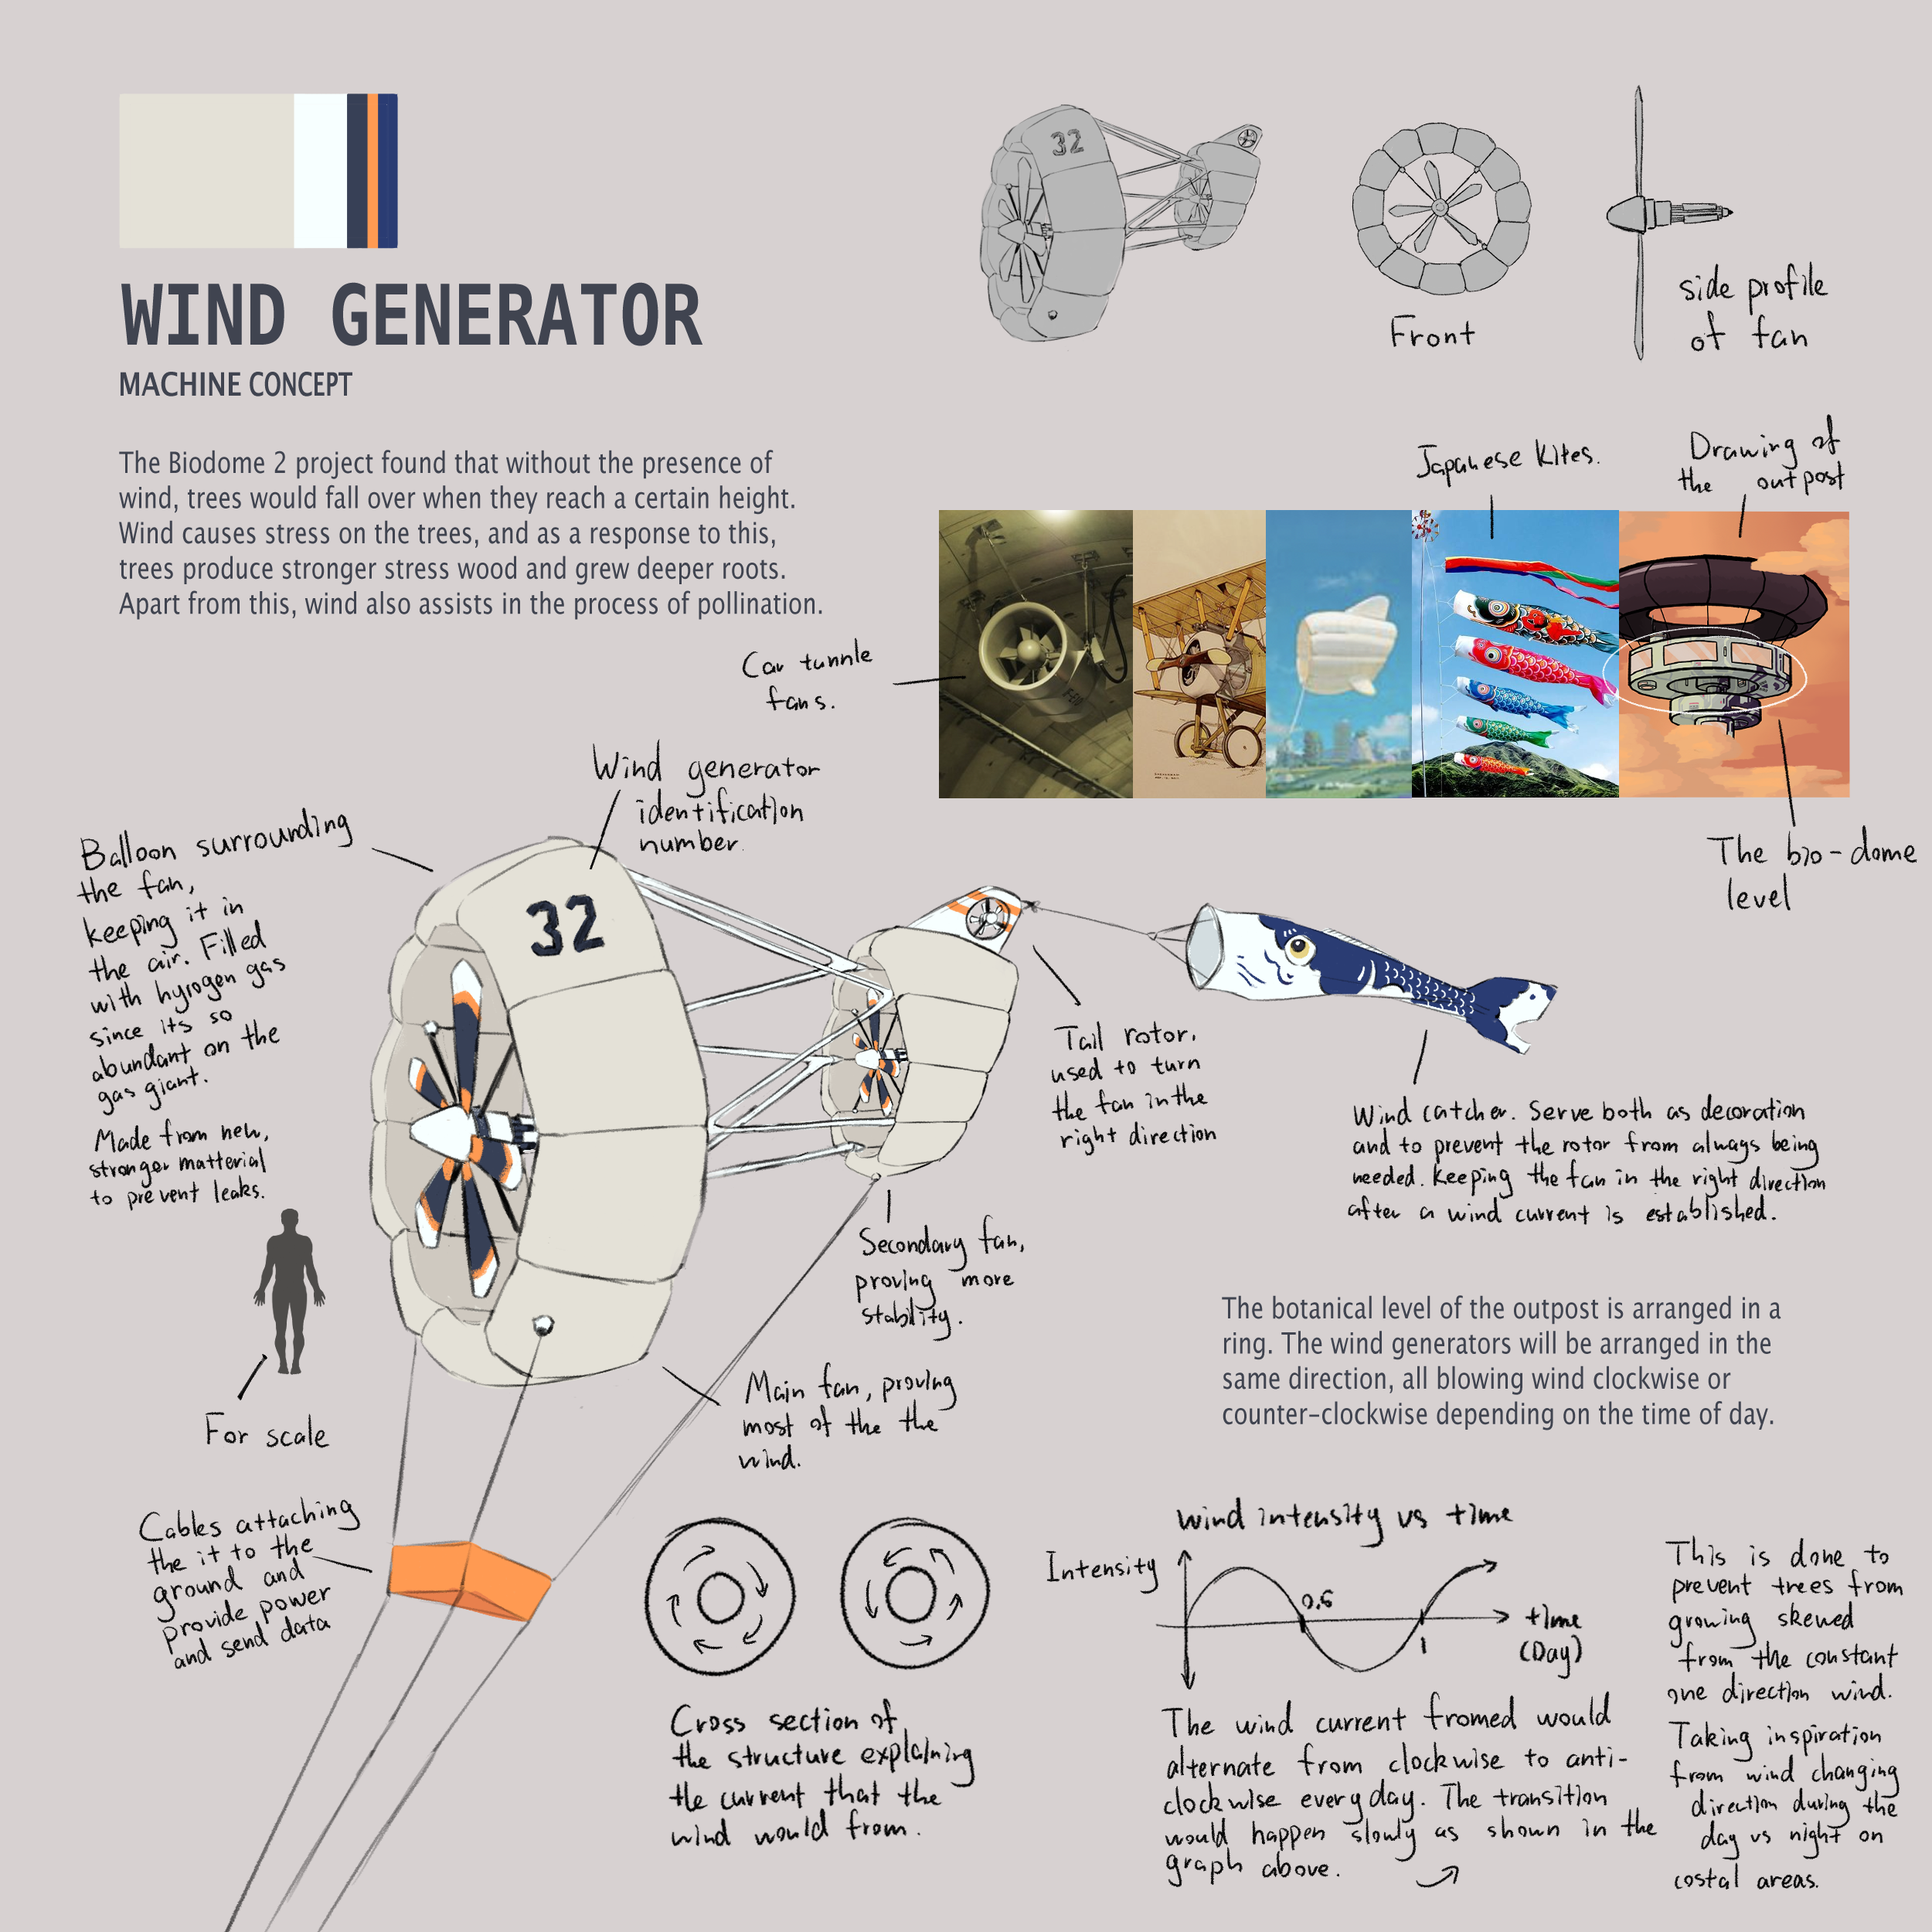 WIND GENERATOR
MACHINE CONCEPT
The Biodome 2 project found that without the presence of
wind, trees would fall over when they reach a certain height.
Wind causes stress on the trees, and as a response to this,
trees produce stronger stress wood and grew deeper roots.
Apart from this, wind also assists in the process of pollination.
32
Front
side profile
of fan
Japanese Kites.
Drawing of
the outpost
Car tunnle
fans.
The bio-dome
level
Wind generator
identification
number.
Balloon surrounding
the fan,
keeping it in
the air. Filled
with hyrogen gas
since its so
abundant on the
gas giant.
Made from new,
stronger matterial
to prevent leaks.
32
For scale
Tail rotor,
used to turn
the fan in the
right direction
Wind catcher. Serve both as decoration
and to prevent the rotor from always being
needed. Keeping the fan in the right direction
after a wind current is established.
Secondary fan,
proving more
stability.
Main fan, proving
most of the the
wind.
The botanical level of the outpost is arranged in a
ring. The wind generators will be arranged in the
same direction, all blowing wind clockwise or
counter-clockwise depending on the time of day.
Cables attaching
the it to the
ground and
provide power
and send data
Cross section of
the structure explaining
the current that the
wind would from.
wind intensity vs time
Intensity
0.5
1
time
(Day)
The wind current fromed would
alternate from clockwise to anti-
clockwise every day. The transition
would happen slowly as shown in the
graph above.
This is done to
prevent trees from
growing skewed
from the constant
one direction wind.
Taking inspiration
from wind changing
direction during the
day vs night on
costal areas.